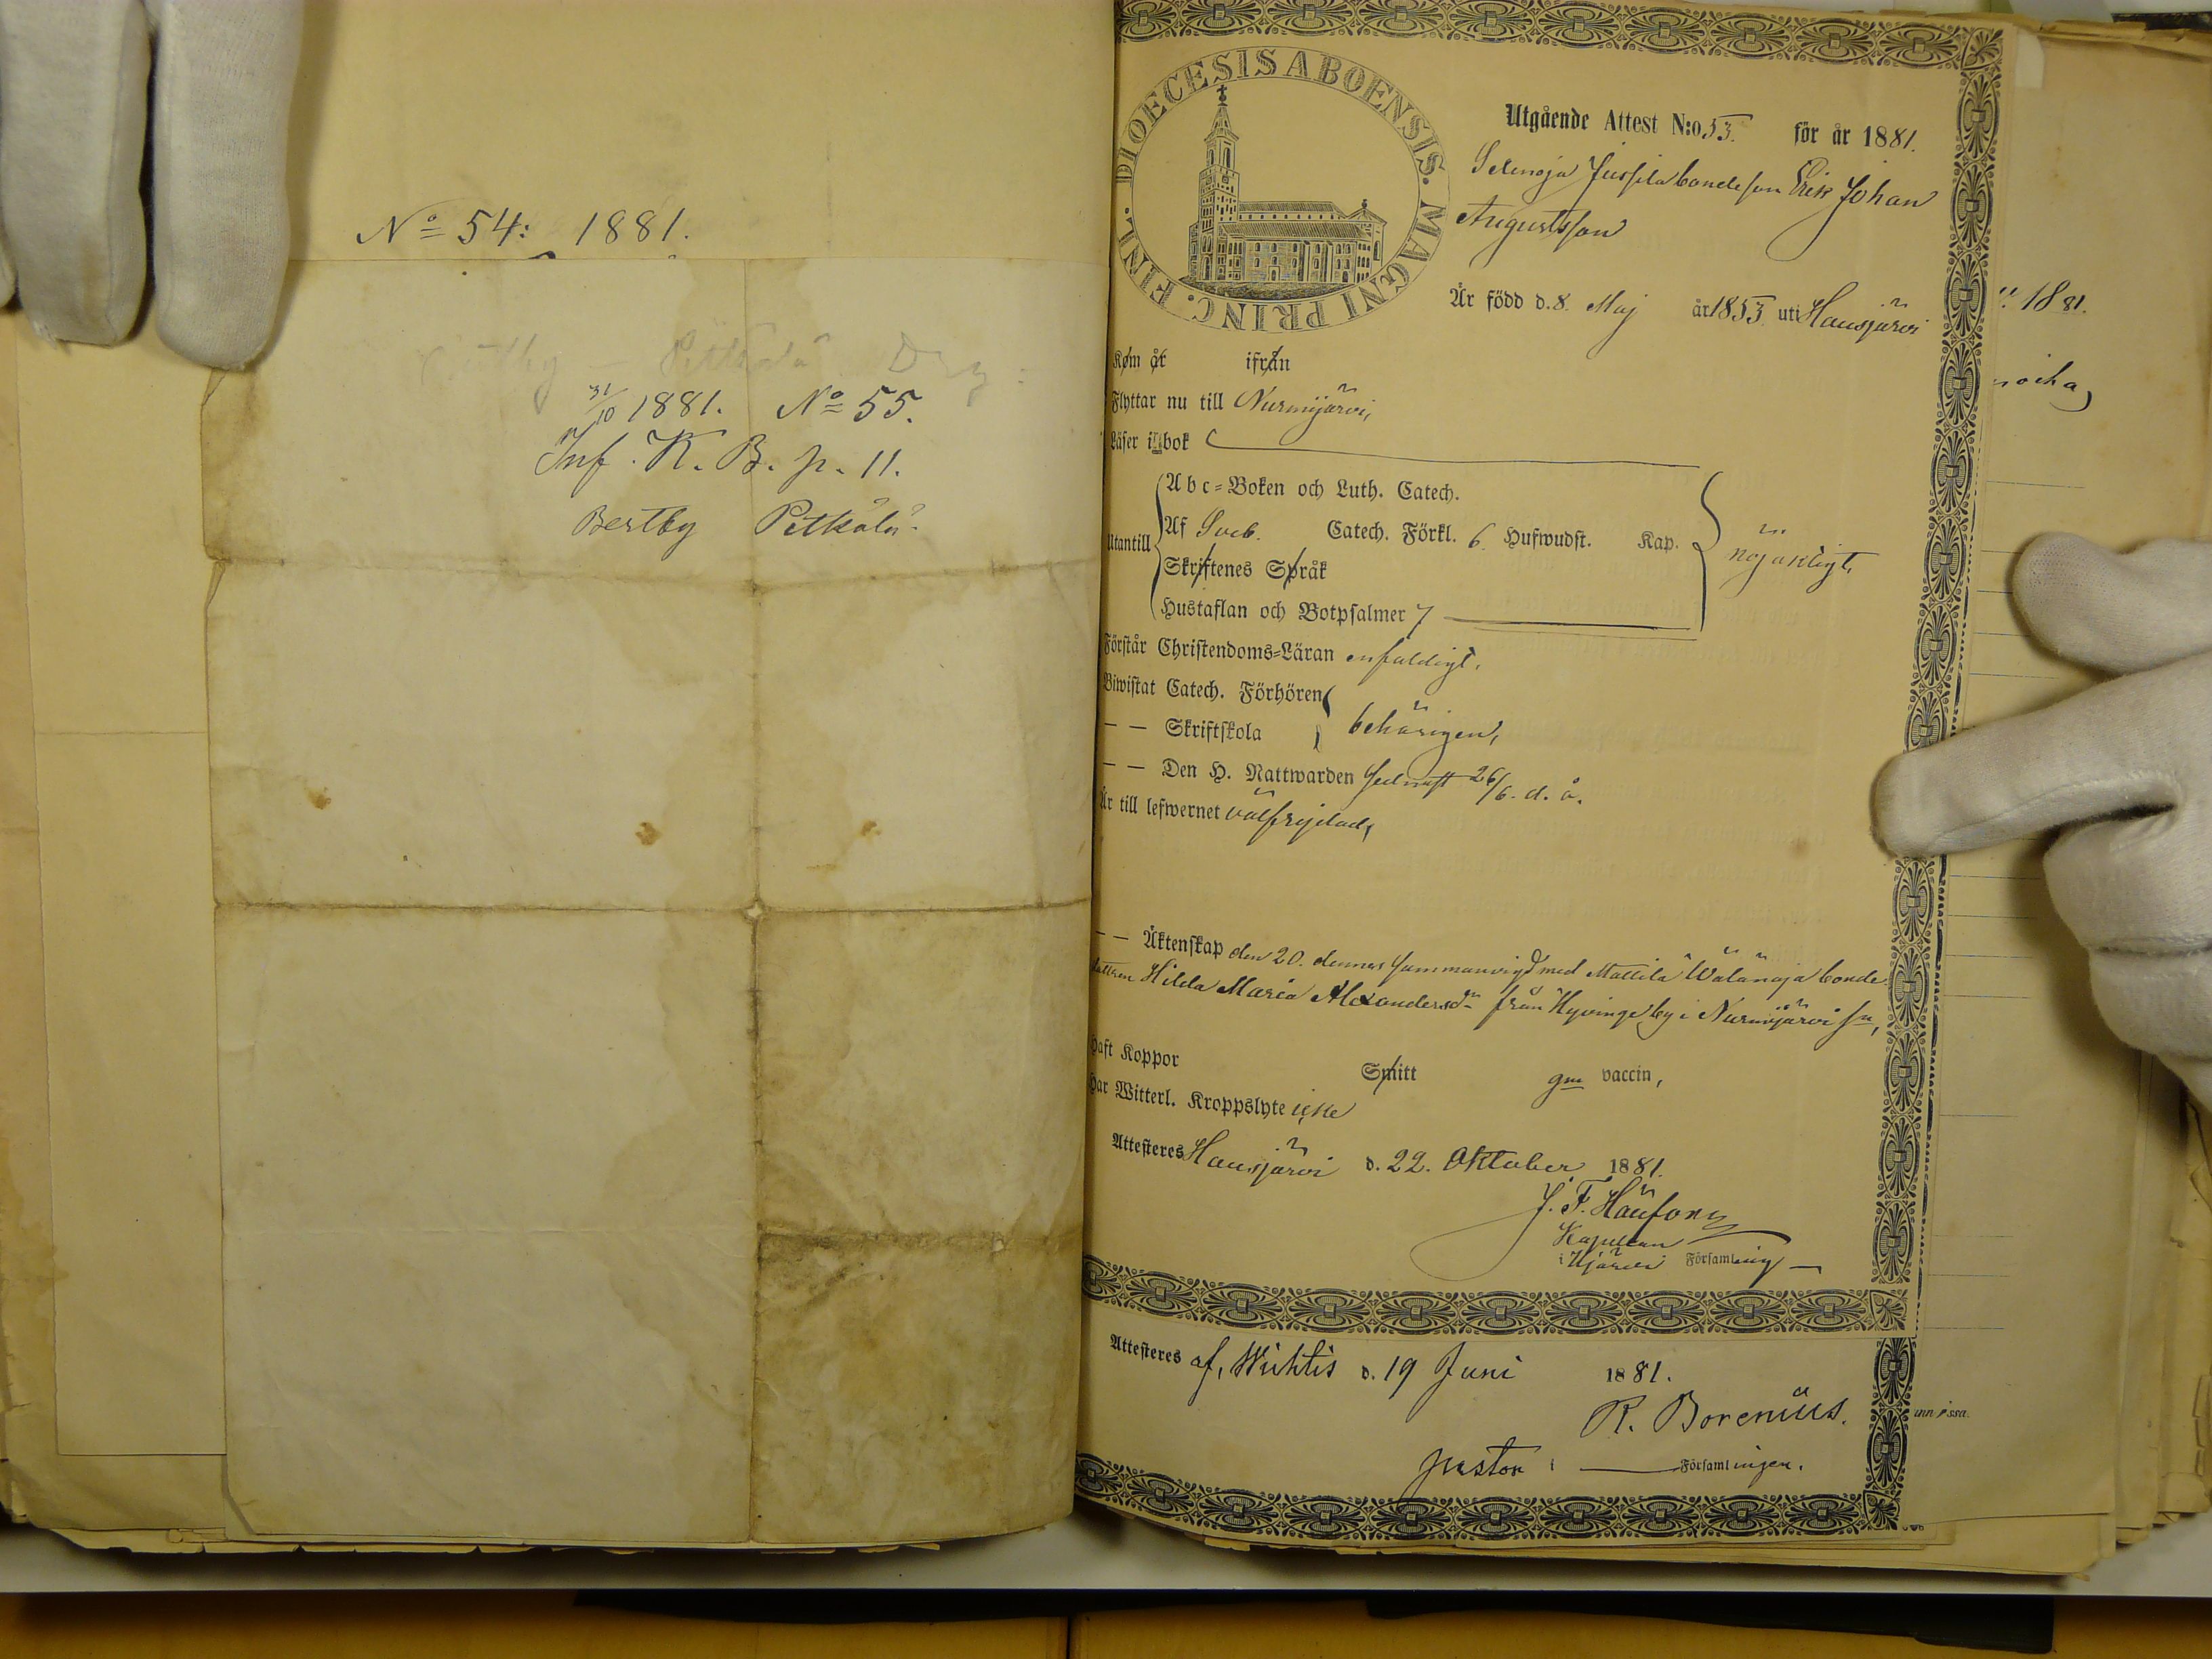 No 54: 1881.
31/10 1881. No 55.
Inf. K. B. p. 11.
Bertby Petkälä
DIOECESIS ABOENSIS. MAGNI PRINC. FINL.
Utgående Attest N:o 53. för år 1881.
Selenoja Jussila bondeson Erik Johan
Augustsson
Är född d. 8. Maj år 1853 uti Hausjärvi
Kom år ifrån
Flyttar nu till Nurmijärvi,
Läser i bok
Abc-Boken och Luth. Catech.
Utantill Af Sveb. Catech. Förkl. 6. Hufwudst. Kap.
nöjaktigt,
Skriftenes Språk
Hustaflan och Botpsalmer 7
Förstår Christendoms-Läran enfaldigt.
Biwistat Catech. Förhören
— — Skriftskola behörigen,
— — Den H. Nattwarden sednast 26/6. d. å.
Är till lefwernet välfrejdad,
— — Äktenskap den 20. dennes sammanvigd med Mattila Wälänoja bonde-
dottren Hilda Maria Alexandersdr från Hyvinge by i Nurmijärvi sn,
Haft Koppor Smitt gm vaccin,
Har Witterl. Kroppslyte icke
Attesteres Hausjärvi d. 22. Oktober 1881.
J. F.
Kapellan
i Hjärvi Församling
Attesteres af, Wichtis d. 19 Juni 1881.
R. Borenius.
pastor i Församlingen.
1881.